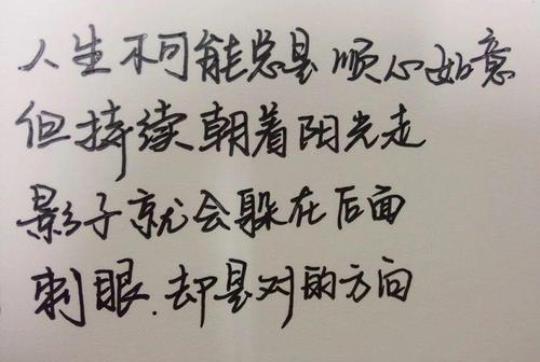 人生不可能总是顺心如意
但持续朝着阳光走
影子就会躲在后面
刺眼.却是对的方向